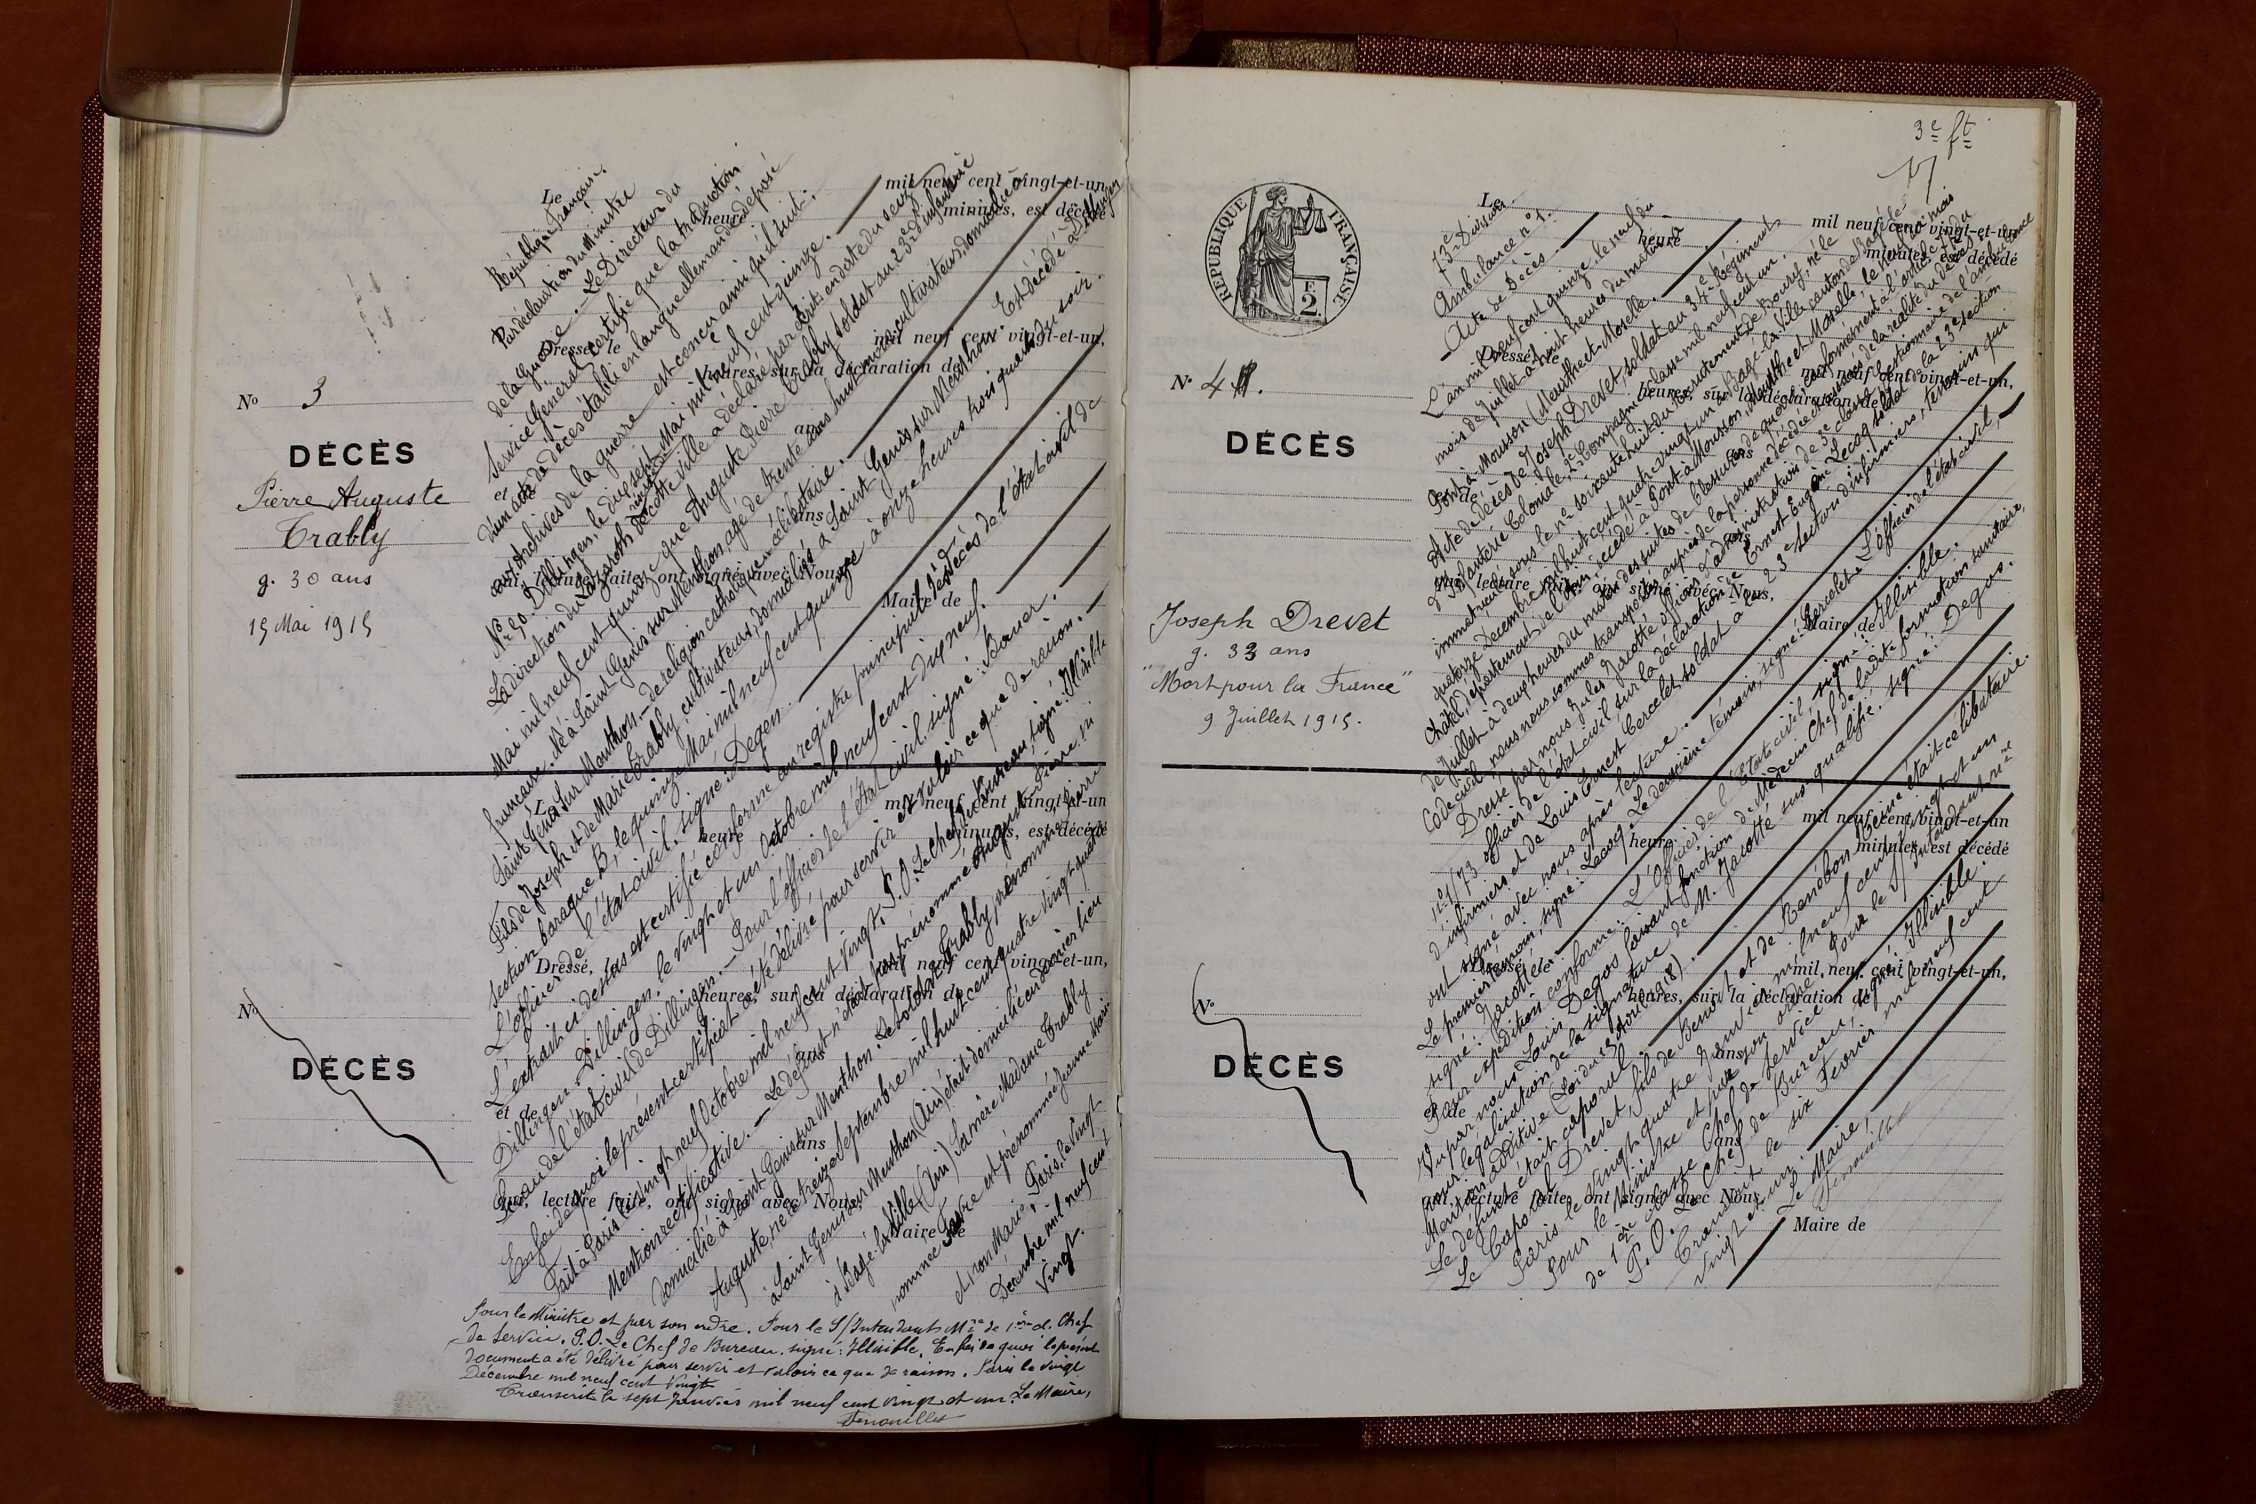 Le
mil neuf cent vingt-et-un
heure
minutes, est décédé
République Française.
Par déclaration du Ministre
de la Guerre. - Le Directeur du
Service Général certifie que la traduction
d'un acte de décès établi en langue allemande déposé
aux Archives de la guerre est conçu ainsi qu'il suit:
Nr 20. Dillingen, le dix sept Mai mil neuf cent quinze.
La direction du Lazareth de cette ville a déclaré par écrit en date du seize
Mai mil neuf cent quinze que Auguste Pierre Trably soldat au 23e d'infanterie
française. Né à Saint Genis sur Menthon, agé de trente ans huit mois, cultivateur, domicilié à
Saint Genis sur Menthon. de religion catholique, célibataire.
Fils de Joseph et de Marie Trably, cultivateurs, domiciliés à Saint Genis sur Menthon. Est décédé à Dillingen
section baraque B, le quinze Mai mil neuf cent quinze à onze heures trois quarts du soir.
L'officier de l'état civil. signé: Degen.
L'extrait ci-dessus est certifié conforme au registre principal des décès de l'état civil de
Dillingen. Dillingen, le vingt et un Octobre mil neuf cent dix neuf.
Sceau de l'état civil de Dillingen. - Pour l'officier de l'état civil signé: Bauer.
En foi de quoi le présent certificat a été délivré pour servir et valoir ce que de raison.
Fait à Paris le vingt neuf Octobre mil neuf cent vingt. P.O. Le Chef du Bureau, signé: Illisible
Mention rectificative. - Le défunt n'était pas prénommé Auguste Pierre ni
domicilié à Saint Genis sur Menthon. Le soldat Trably, prénommé Pierre
Auguste, né le treize Septembre mil huit cent quatre vingt quatre
à Saint Genis sur Menthon (Ain) était domicilié en dernier lieu
à Bagé-la-Ville (Ain) Sa mère Madame Trably
nommée Favre est prénommée Jeanne Marie
et non Marie. Paris, le vingt
Décembre mil neuf cent
Vingt.
Pour le Ministre et par son ordre. Pour le S/Intendant Mre de 1ère cl. Chef
de Service. P.O. Le Chef de Bureau. signé: Illisible. En foi de quoi le présent
document a été délivré pour servir et valoir ce que de raison. Paris le vingt
Décembre mil neuf cent Vingt
Transcrit le sept Janvier mil neuf cent vingt et un. Le Maire,
Dressé, le
mil neuf cent vingt-et-un,
heures, sur la déclaration de
an
et de
ans
qui, lecture faite, ont signé avec Nous,
Maire de
No 3
DÉCÈS
Pierre Auguste
Trably
g. 30 ans
15 Mai 1915
Le
mil neuf cent vingt-et-un
heure
minutes, est décédé
Dressé, le
mil neuf cent vingt-et-un,
heures, sur la déclaration de
et de
ans
qui, lecture faite, ont signé avec Nous,
Maire de
No
DÉCÈS
3e ft
RÉPUBLIQUE FRANÇAISE
F.
2.
Le
mil neuf cent vingt-et-un
heure
minutes, est décédé
73e Division
Ambulance no 1.
Acte de Décès
L'an mil neuf cent quinze le neuf du
mois de Juillet à huit heures du matin à
Pont-à-Mousson (Meurthe et Moselle.
Acte de décès de Joseph Drevet, soldat au 34e Régiment
d'Infanterie Coloniale, 2e Compagnie classe mil neuf cent un,
immatriculé sous le no soixante huit du recrutement de Bourg, né le
quatorze Decembre mil huit cent quatre vingt un à Bagé-la-Ville canton de Bagé-le-
Châtel, département de l'Ain, décédé à Pont à Mousson, Meurthe et Moselle, le neuf du mois
de Juillet à deux heures du matin des suites de blessures de guerre conformément à l'article 77 du
Code civil nous nous sommes transporté auprès de la personne décédée et assurés de la réalité du décès.
Dressé par nous Jules Jacotté officier d'administration de 3e classe gestionnaire de l'ambulance
no 1/73 officier de l'état civil sur la déclaration de Ernest Eugène Lecoq soldat à la 23e section
d'infirmiers et de Louis Ernest Cercelet soldat à la 23e section d'infirmiers, témoins qui
ont signé avec nous après lecture.
Le premier témoin, signé: Lecoq. Le deuxième témoin signé: Cercelet. L'officier de l'état civil,
signé: Jacotté.
Pour expédition conforme: L'Officier de l'Etat civil, signé: Illisible.
Vu par nous Louis Degas faisant fonction de Médecin Chef de la dite formation sanitaire,
pour légalisation de la signature de M. Jacotté sus-qualifié. signé: Degas.
Le défunt était caporal.
Le Caporal Drevet, fils de Benoit et de Renébon Reine était célibataire.
Paris le vingt quatre Janvier mil neuf cent vingt et un
Pour le Ministre et par son ordre, Pour le S/Intendant Mre
de 1ère classe Chef de Service
P.O. Le Chef de Bureau, signé: Illisible.
Transcrit le six Fevrier mil neuf cent
vingt et un. Le Maire,
Dressé, le
mil neuf cent vingt-et-un,
heures, sur la déclaration de
et de
ans
qui, lecture faite, ont signé avec Nous,
Maire de
No 4
DÉCÈS
Joseph Drevet
g. 33 ans
"Mort pour la France"
9 Juillet 1915.
mil neuf cent vingt-et-un
heure
minutes, est décédé
Dressé, le
mil neuf cent vingt-et-un,
heures, sur la déclaration de
ans
et de
ans
qui, lecture faite, ont signé avec Nous,
Maire de
No
DÉCÈS